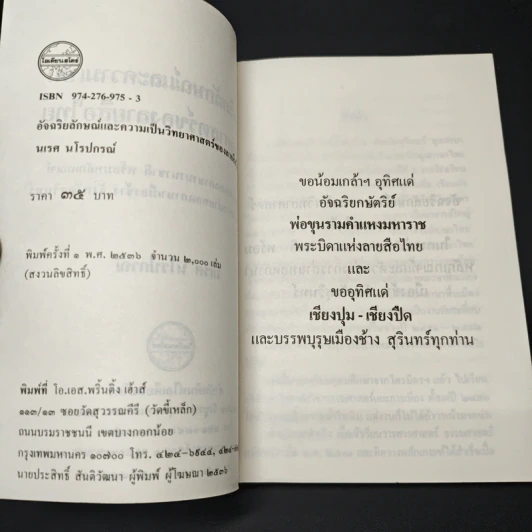 โอเดียนสโตร์
ISBN 974-276-975 - 3
อัจฉริยลักษณ์และความเป็นวิทยาศาสตร์ของลายสือ
นเรศ นโรปกรณ์
ราคา ๓๕ บาท
พิมพ์ครั้งที่ ๑ พ.ศ. ๒๕๓๖ จำนวน ๒,๐๐๐ เล่ม
(สงวนลิขสิทธิ์)
พิมพ์ที่ โอ.เอส.พริ้นติ้ง เฮ้าส์
๑๑๓/๑๓ ซอยวัดสุวรรณคีรี (วัดขี้เหล็ก)
ถนนบรมราชชนนี เขตบางกอกน้อย
กรุงเทพมหานคร ๑๐๗๐๐ โทร. ๔๒๔-๖๙๔๔, ๔๒๔-
นายประสิทธิ์ สันติวัฒนา ผู้พิมพ์ ผู้โฆษณา ๒๕๓๖
ขอน้อมเกล้าฯ อุทิศแด่
อัจฉริยกษัตริย์
พ่อขุนรามคำแหงมหาราช
พระบิดาแห่งลายสือไทย
และ
ขออุทิศแด่
เชียงปุม - เชียงปืด
และบรรพบุรุษเมืองช้าง สุรินทร์ทุกท่าน